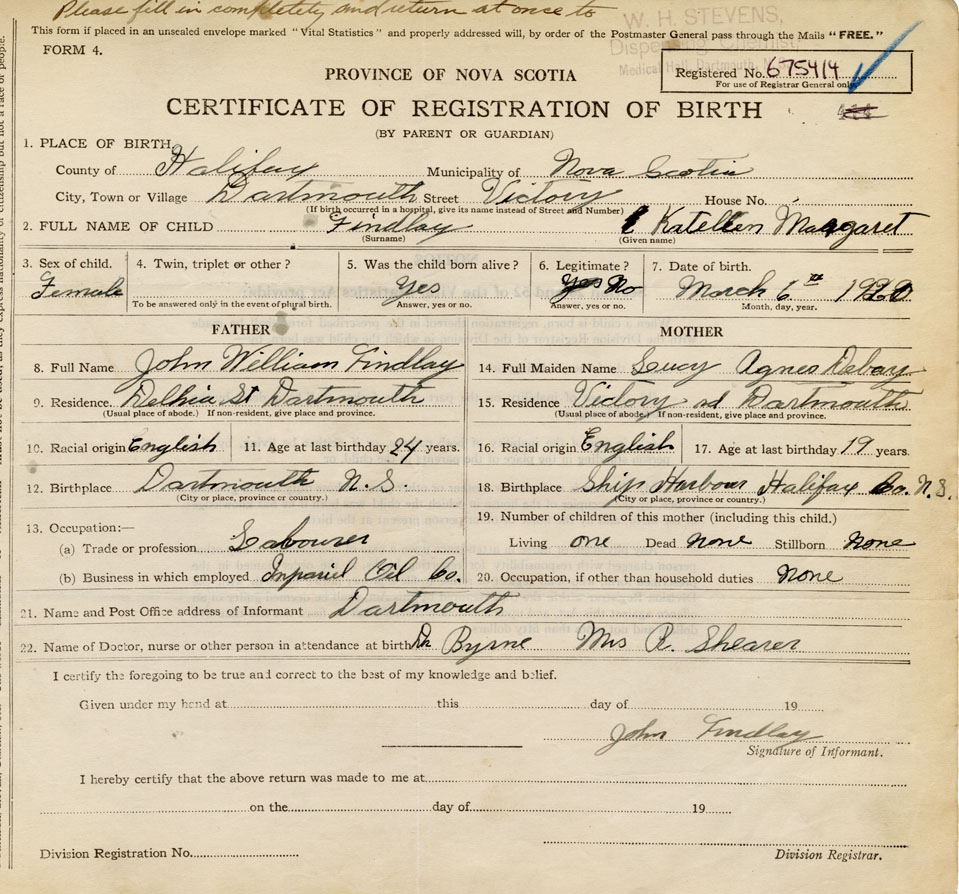 Please fill in completely and return at once to
W. H. STEVENS,
Dispensing Chemist,
Medical Hall, Dartmouth, N.
This form if placed in an unsealed envelope marked "Vital Statistics" and properly addressed will, by order of the Postmaster General pass through the Mails "FREE."
FORM 4.
Registered No. 675414
For use of Registrar General only
PROVINCE OF NOVA SCOTIA
CERTIFICATE OF REGISTRATION OF BIRTH
(BY PARENT OR GUARDIAN)
1. PLACE OF BIRTH
County of Halifax Municipality of Nova Scotia
City, Town or Village Dartmouth Street Victory House No.
(If birth occurred in a hospital, give its name instead of Street and Number)
2. FULL NAME OF CHILD Findlay Katellen Margaret
(Surname) (Given name)
3. Sex of child. 4. Twin, triplet or other? 5. Was the child born alive? 6. Legitimate? 7. Date of birth.
Female Yes Yes No March 6th 1920
To be answered only in the event of plural birth. Answer, yes or no. Answer, yes or no. Month, day, year.
FATHER MOTHER
8. Full Name John William Findlay 14. Full Maiden Name Lucy Agnes
9. Residence. St Dartmouth 15. Residence Victory Dartmouth
(Usual place of abode.) If non-resident, give place and province. (Usual place of abode.) If non-resident, give place and province.
10. Racial origin English 11. Age at last birthday 24 years. 16. Racial origin English 17. Age at last birthday 19 years.
12. Birthplace Dartmouth N.S. 18. Birthplace Ship Harbour Halifax Co. N.S.
(City or place, province or country.) (City or place, province or country.)
13. Occupation:— 19. Number of children of this mother (including this child.)
(a) Trade or profession Labourer Living one Dead None Stillborn None
(b) Business in which employed Imparial Oil Co. 20. Occupation, if other than household duties None
21. Name and Post Office address of Informant Dartmouth
22. Name of Doctor, nurse or other person in attendance at birth Dr Byrne Mrs R. Shearer
I certify the foregoing to be true and correct to the best of my knowledge and belief.
Given under my hand at this day of 19
John Findlay
Signature of Informant.
I hereby certify that the above return was made to me at
on the day of 19
Division Registration No.
Division Registrar.